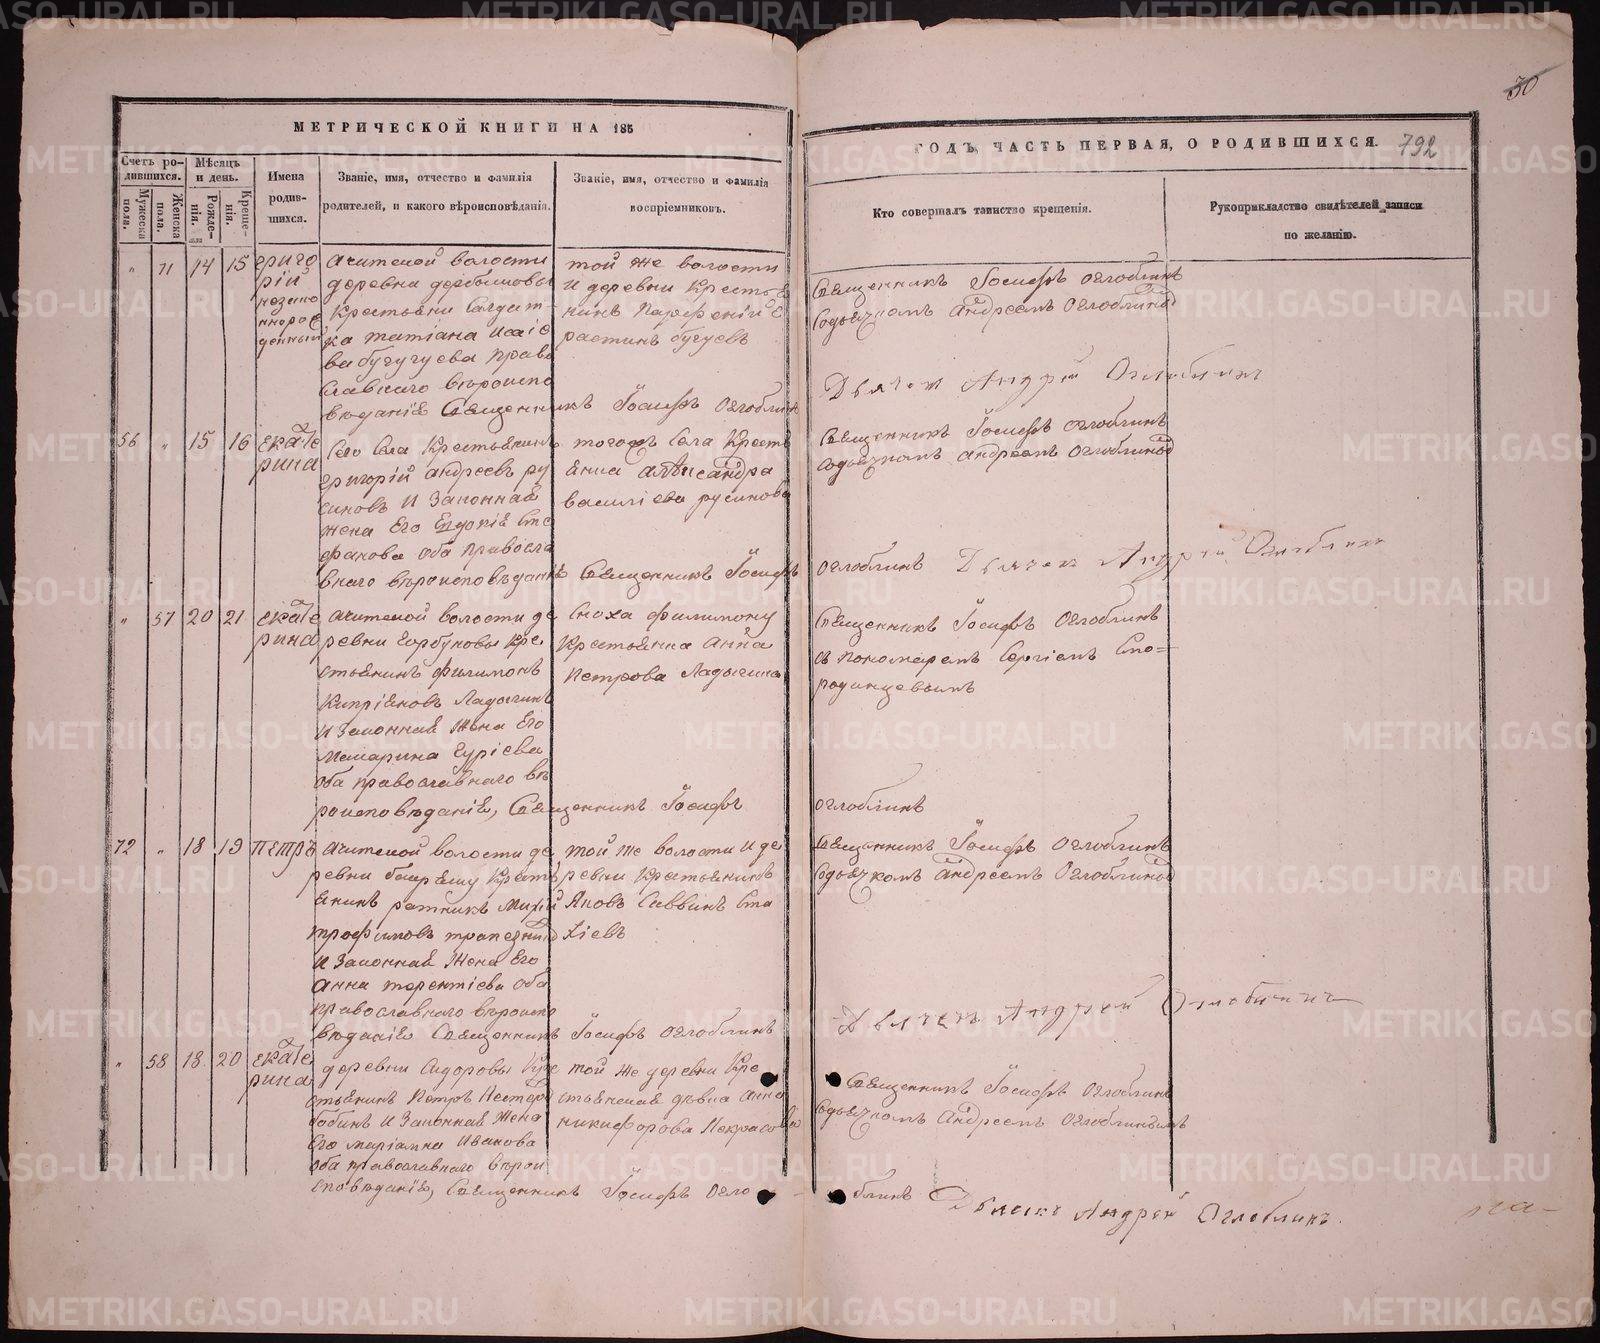 30
МЕТРИЧЕСКОЙ КНИГИ НА 185
ГОДЪ, ЧАСТЬ ПЕРВАЯ, О РОДИВШИХСЯ. 792
Счетъ ро-
дившихся.
Мужеска пола.
Женска пола.
Мѣсяцъ и день.
Рожде-
нія.
Креще-
нія.
Имена
родив-
шихся.
Званіе, имя, отчество и фамилія
родителей, и какого вѣроисповѣданія.
Званіе, имя, отчество и фамилія
воспріемниковъ.
Кто совершалъ таинство крещенія.
Рукоприкладство свидѣтелей записи
по желанію.
" 71 14 15
григо
рій
незако
ннорож
денный
Ачитской волости
деревни
крестьянки Салдат-
ка татіана Исаіе
ва бугуева право
славнаго вѣроиспо
вѣданія Священникъ Іосифъ Оглоблинъ
той же волости
и деревни кресть
янинъ Парфеній
бугуевъ
Священникъ Іосифъ Оглоблинъ
Содьячкомъ Андреемъ Оглоблинымъ
Дьячек Андрей Оглоблинъ
56 " 15 16
екате
рина
Сего Села Крестьянинъ
григорій андреевъ ру
синовъ И Законная
жена Его Евдокія Сте
фанова оба правосла
внаго вѣроисповѣданія Священникъ Іосифъ
тогожъ Села Кресть
янка александра
василіева русинова
Священникъ Іосифъ Оглоблинъ
Содьячкомъ андреемъ Оглоблинымъ
Оглоблинъ Дьячекъ Андрей Оглоблинъ
" 57 20 21
екате
рина
Ачитской волости де
ревни Горбуновы кре
стьянинъ филимонъ
Кипріяновъ Ладыгинъ
И Законная Жена Его
Макарина Гуріева
оба православнаго вѣ
роисповѣданія, Священникъ Іосифъ
Сноха филимону
Крестьянка Анна
петрова Ладыгина
Священникъ Іосифъ Оглоблинъ
съ пономаремъ Сергіемъ Спо=
родинцевымъ
Оглоблинъ
72 " 18 19
петръ
Ачитской волости де
ревни Кресть
янинъ ратникъ
трофимовъ трапезник
И Законная Жена Его
Анна терентіева оба
православнаго вѣроиспо
вѣданія Священникъ Іосифъ Оглоблинъ
той же волости И де
ревни Крестьянинъ
Яковъ Саввинъ Ста
хіевъ
Священникъ Іосифъ Оглоблинъ
Содьячкомъ Андреемъ Оглоблинымъ
Дьячекъ Андрей Оглоблинъ
" 58 18 20
екате
рина
деревни Сидоровы Кре
стьянинъ Петръ Нестеро
бобинъ И Законная Жена
Его маріамна Иванова
оба православнаго вѣрои
сповѣданія, Священникъ Іосифъ Огло
той же деревни Кре
стьянская дѣвка Анна
никифорова Некрасова
Священникъ Іосифъ Оглоблинъ
Содьячкомъ Андреемъ Оглоблинымъ
блинъ Дьячекъ Андрей Оглоблинъ.
METRIKI.GASO-URAL.RU